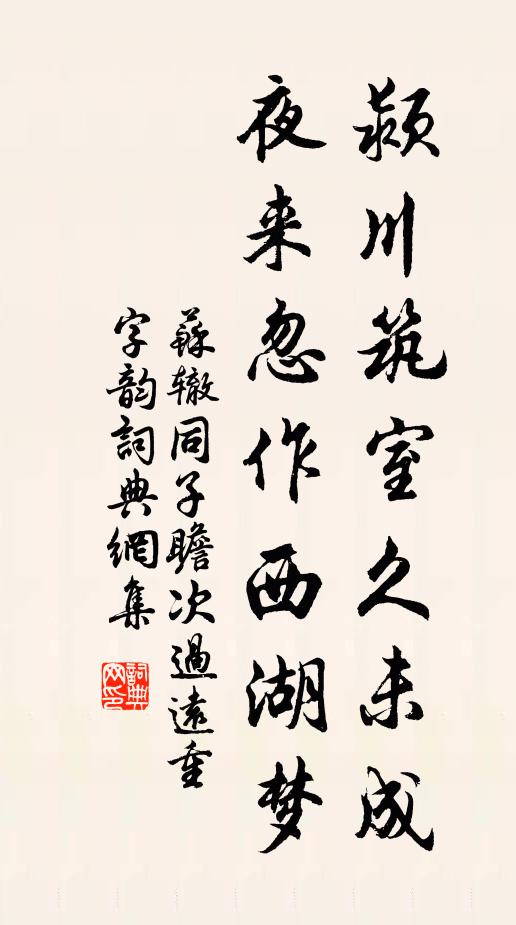 颍川筑室久未成
夜来忽作西湖梦
蘇辙同子瞻次過遠重
字韵詞典網集
詞典網印